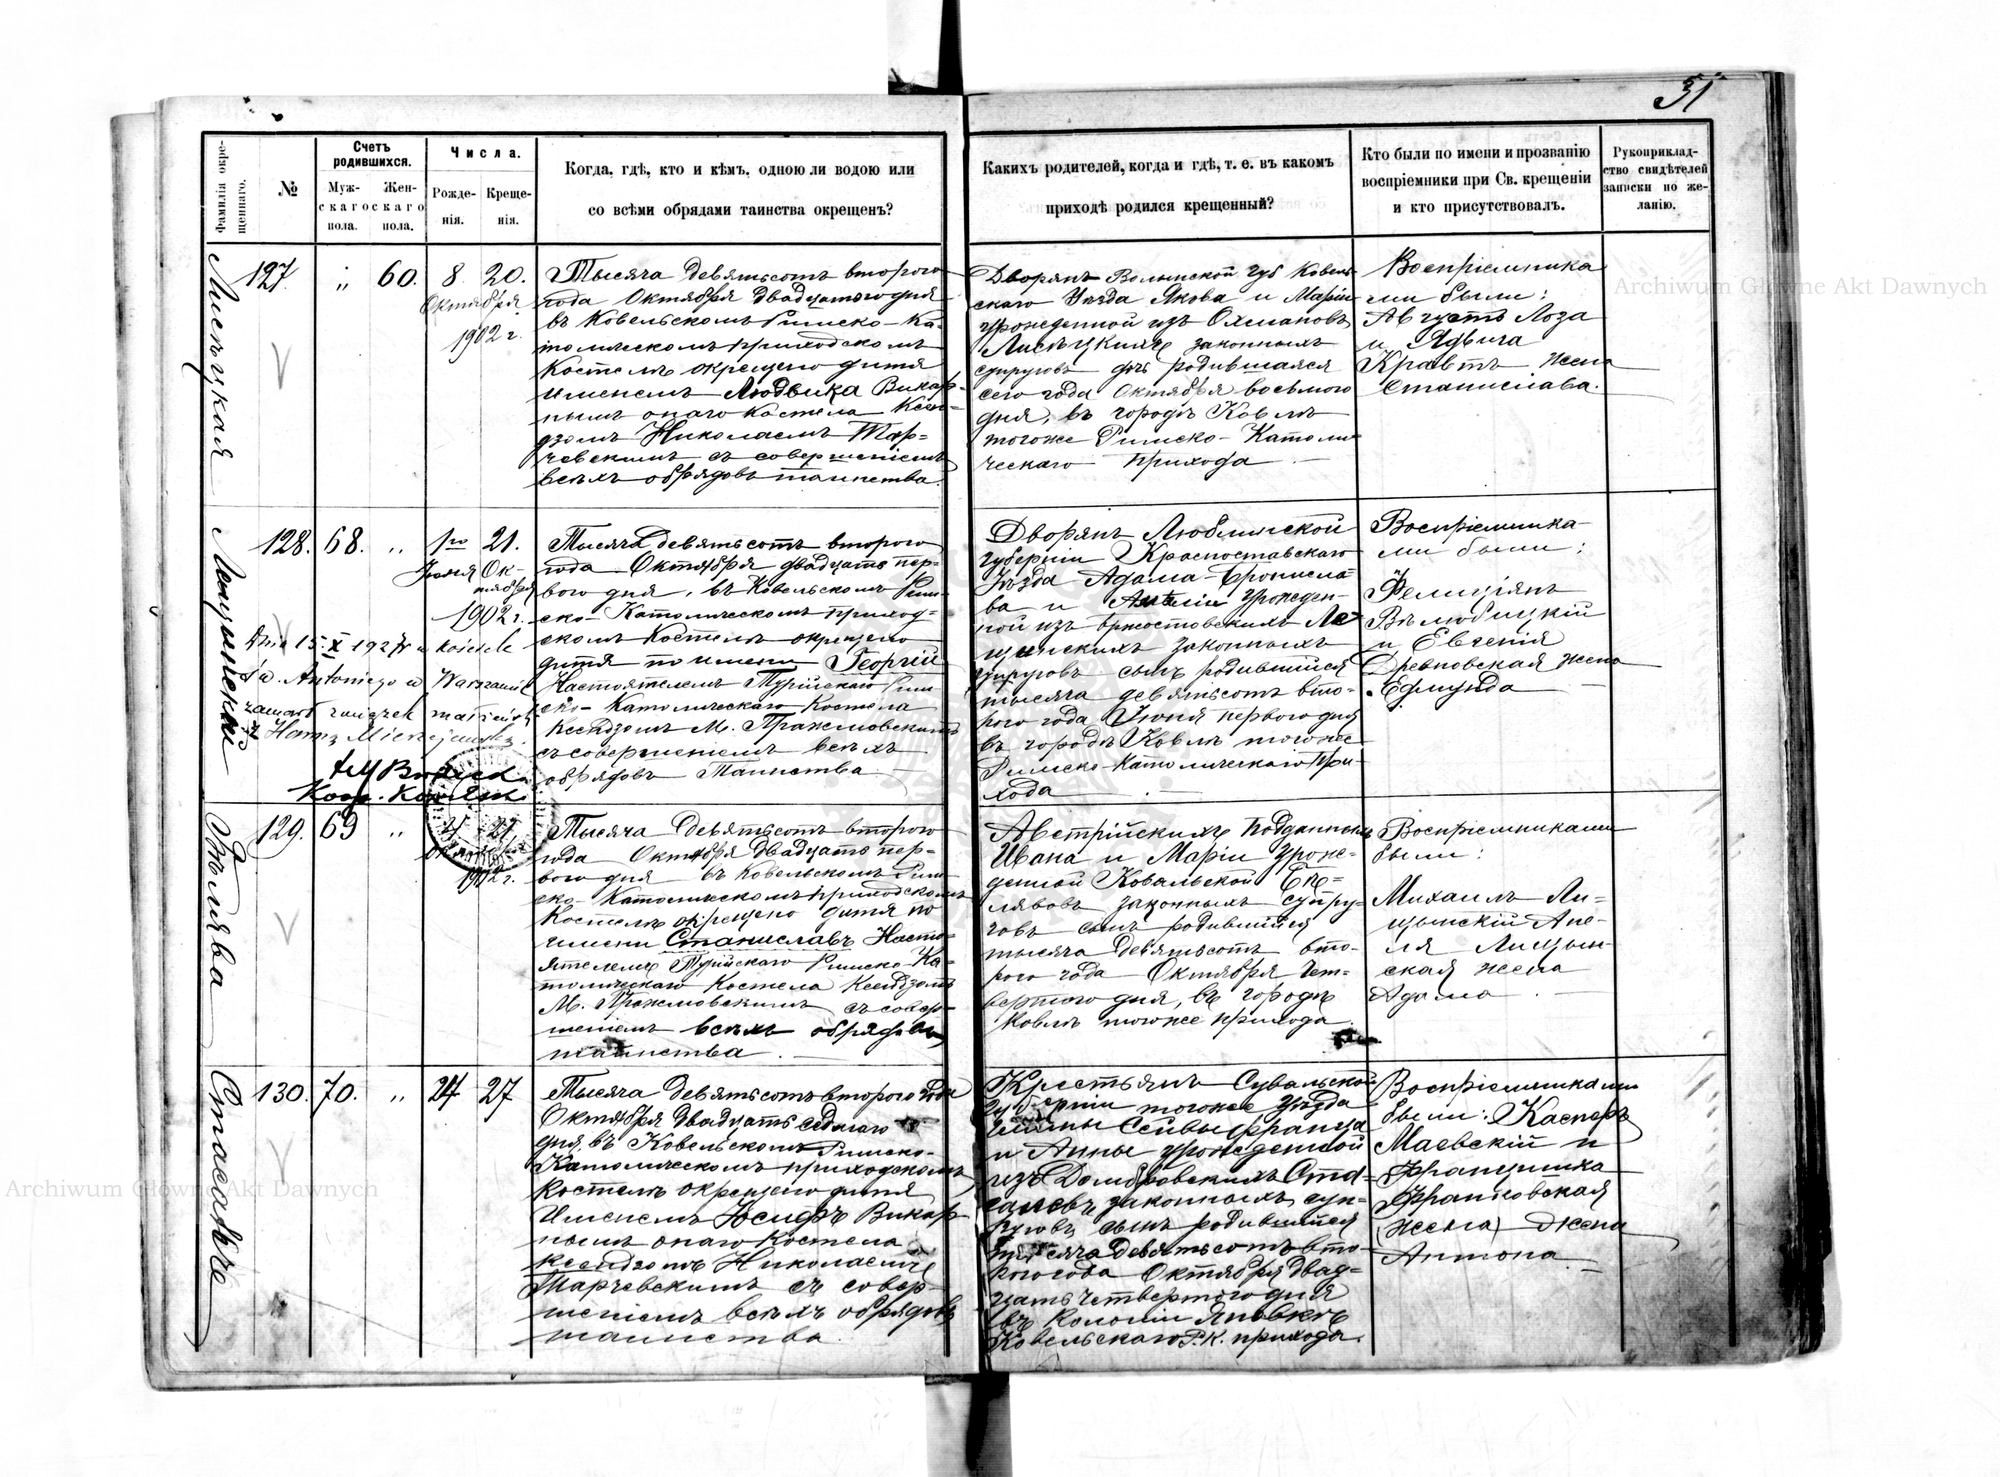 51
Фамилія окре-
щеннаго.
№
Счетъ
родившихся.
Муж-
скаго
пола.
Жен-
скаго
пола.
Числа.
Рожде-
нія.
Креще-
нія.
Когда, гдѣ, кто и кѣмъ, одною ли водою или
со всѣми обрядами таинства окрещенъ?
Каких­ъ родителей, когда и гдѣ, т. е. въ какомъ
приходѣ родился крещенный?
Кто были по имени и прозванію
воспріемники при Св. крещеніи
и кто присутствовалъ.
Рукоприклад-
ство свидѣтелей
записки по же-
ланію.
127.
60.
8.
20.
Октября
1902 г.
Тысяча девятьсотъ второго
года Октября двадцатого дня
въ Ковельскомъ Римско-Ка-
толическомъ приходскомъ
Костелѣ окрещено дитя
именемъ Людвика Викар-
нымъ онаго костела Ксен-
дзомъ Николаемъ Тар-
чевскимъ съ совершеніемъ
всѣхъ обрядовъ таинства.
Дворянъ Волынской губ Ковель-
скаго Уѣзда Якова и Маріи
урожденной изъ Охмановъ
законныхъ
супруговъ дочь родившаяся
сего года Октября восьмого
дня, въ городѣ Ковлѣ
тогоже Римско-Католи-
ческаго прихода
Воспріемника-
ми были:
Августъ Лоза
и Ядвига
Кравтъ жена
Станислава.
128.
68.
"
1го
21.
Іюня Ок-
тября
1902 г.
Dnia 15 X 1927 r w kościele
Św. Antoniego w Warszawie
zawarł związek małżeński
z
Тысяча девятьсотъ второго
года Октября двадцать пер-
вого дня, въ Ковельскомъ Рим-
ско-Католическомъ приход-
скомъ костелѣ окрещено
дитя по имени Георгій
Настоятелемъ Турійскаго Рим-
ско-Католическаго Костела
Ксендзомъ М. Пражмовскимъ
съ совершеніемъ всѣхъ
обрядовъ Таинства
Дворянъ Люблинской
губерніи Красноставскаго
Уѣзда Адама-Бронисла-
ва и урожден-
ной изъ Бржостовскихъ
законныхъ
супруговъ сынъ родившійся
тысяча девятьсотъ вто-
рого года Іюня первого дня
въ городѣ Ковлѣ тогоже
Римско-Католическаго При-
хода
Воспріемника-
ми были:
Фелиціянъ
и Евгенія
Древновская жена
Эдмунда
129.
69
"
21.
1902 г.
Тысяча девятьсотъ второго
года Октября двадцать пер-
вого дня въ Ковельскомъ Рим-
ско-Католическомъ приходскомъ
Костелѣ окрещено дитя по
имени Станиславъ Насто-
ятелемъ Турійскаго Римско-Ка-
толическаго Костела Ксендзомъ
М. Пражмовскимъ съ совер-
шеніемъ всѣхъ обрядовъ
таинства
Австрійскихъ подданныхъ
Ивана и Маріи Урож-
денной Ковальской
законныхъ супру-
говъ сынъ родившійся
тысяча девятьсотъ вто-
рого года Октября Чет-
вертого дня, въ городѣ
Ковлѣ тогоже прихода.
Воспріемниками
были:
Михаилъ Ли-
цынскій Анѣ-
ля Лицын-
ская жена
Адама
130.
70.
"
24
27
Тысяча девятьсотъ второго года
Октября двадцать седьмого
дня, въ Ковельскомъ Римско-
Католическомъ приходскомъ
Костелѣ окрещено дитя
Именемъ Іосифъ Викар-
нымъ онаго Костела
ксендзомъ Николаемъ
Тарчевскимъ съ совер-
шеніемъ всѣхъ обрядовъ
таинства.
Крестьянъ Сувалской
губерніи тогоже уѣзда
гмины Сейвы Франца
и Анны урожденной
изъ Домбровскихъ
законныхъ суп-
руговъ сынъ родившійся
тысяча девятьсотъ вто-
рого года Октября двад-
цать четвертого дня
въ колоніи Яновкѣ
Ковельскаго Р. К. прихода.
Воспріемниками
были: Касперъ
Маевскій и
Франтишка
Франковская
(жена) жена
Антона
Archiwum Główne Akt Dawnych
Archiwum Główne Akt Dawnych